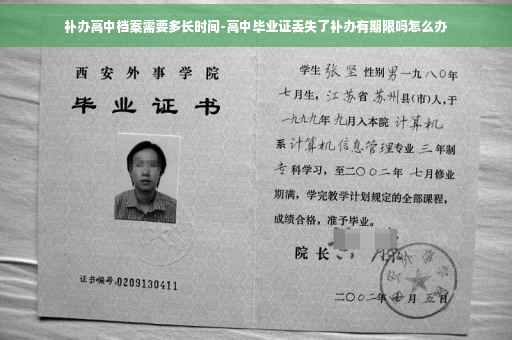 补办高中档案需要多长时间-高中毕业证丢失了补办有期限吗怎么办
西安外事学院
毕业证书
证书编号:0209130411
学生 张坚 性别 男 一九八〇年
七月生，江苏省 苏州县(市)人，于
一九九九年 九月入本院 计算机
系 计算机信息管理专业 三 年制
专 科学习，至二〇〇二年 七月修业
期满，学完教学计划规定的全部课程，
成绩合格，准予毕业。
院长
二〇〇二年 月 五日